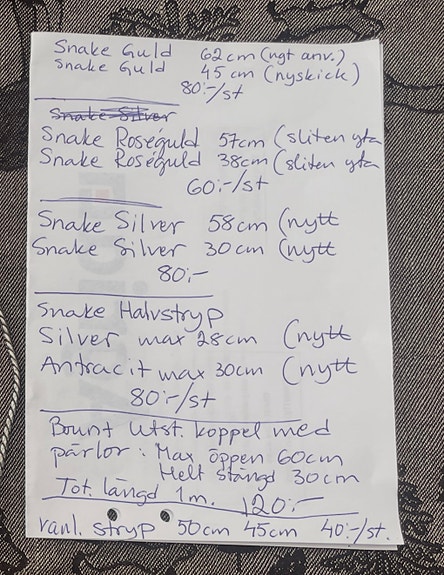 Snake Guld 62cm (ngt anv.)
Snake Guld 45cm (nyskick)
80:-/st
Snake Silver
Snake Roséguld 57cm (sliten yta
Snake Roséguld 38cm (sliten yta
60:-/st
Snake Silver 58cm (nytt
Snake Silver 30cm (nytt
80:-
Snake Halvstryp
Silver max 28cm (nytt
Antracit max 30cm (nytt
80:-/st
Bount Utst. koppel med
pärlor: Max öppen 60cm
Helt stängd 30cm
Tot. längd 1m. 120:-
vanl. stryp 50cm 45cm 40:-/st.